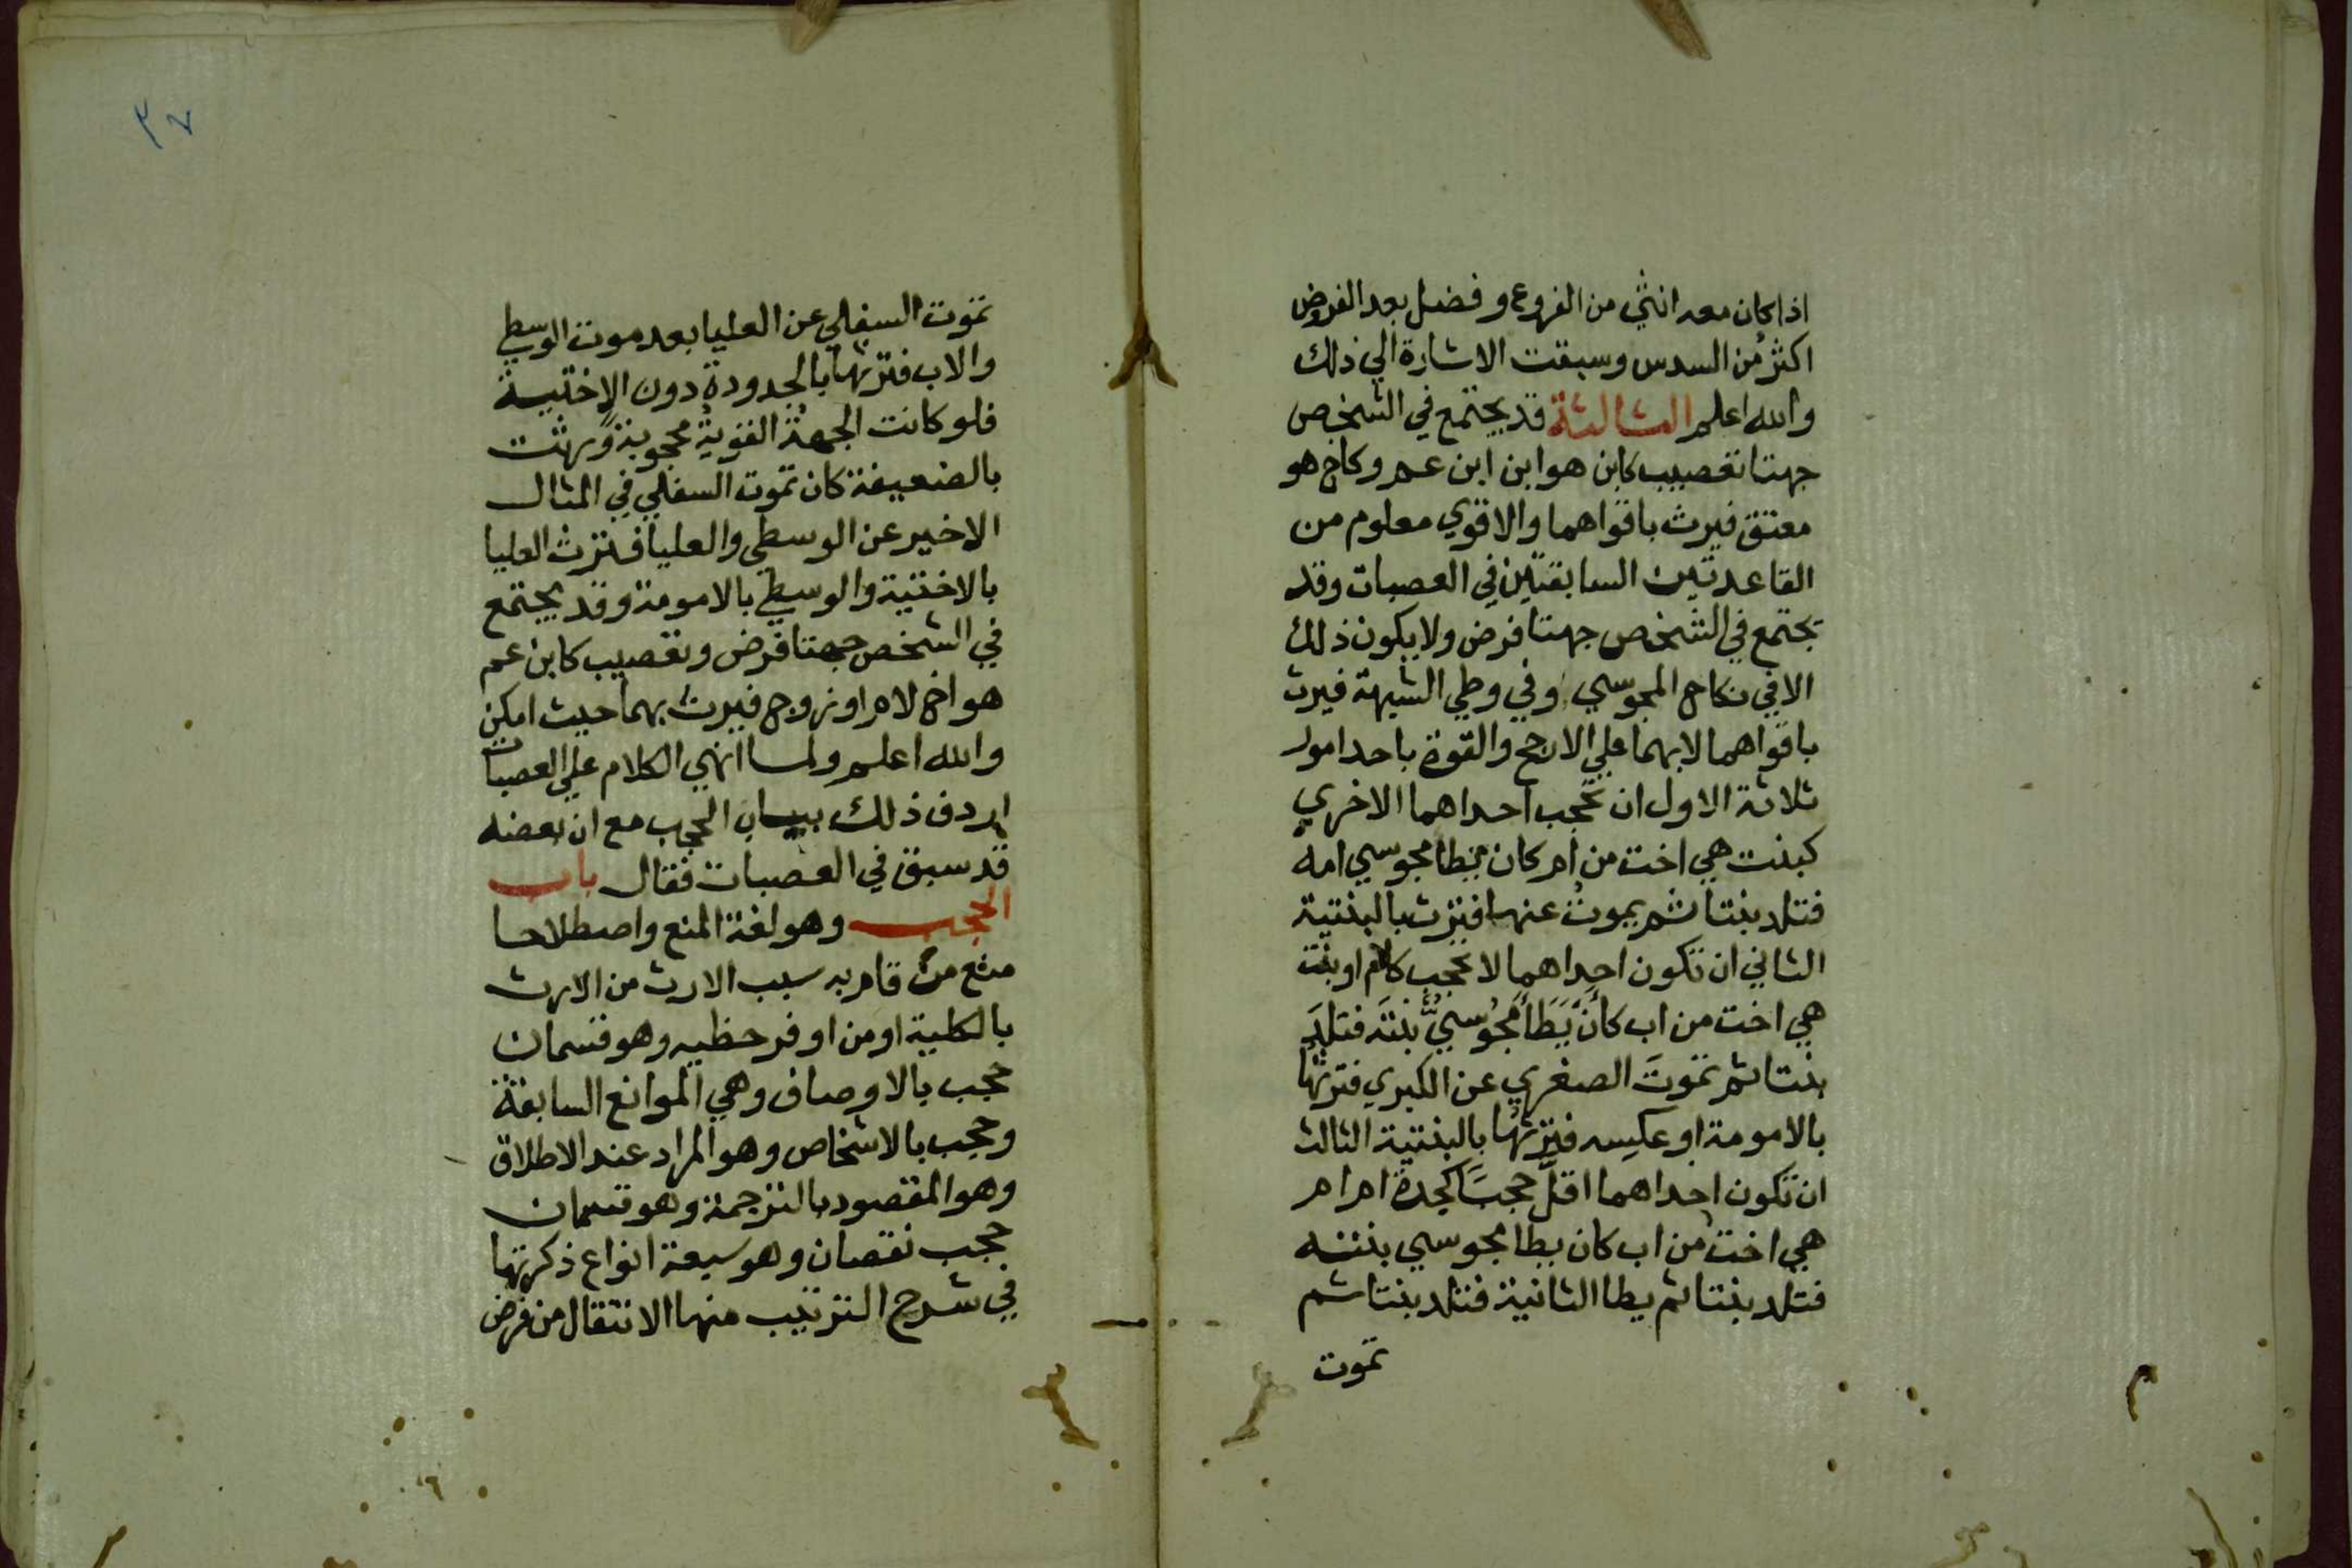 اذا كان معه انثي من الفروع وفضل بعد الفروض
اكثر من السدس وسبقت الاشارة الي ذلك
والله اعلم الثالثة قد يجتمع في الشخص
جهتا تعصيب كابن هو ابن ابن عم وكاخ هو
معتق فيرث باقواهما والاقوي معلوم من
القاعدتين السابقتين في العصبات وقد
يجتمع في الشخص جهتا فرض ولا يكون ذلك
الا في نكاح المجوسي وفي وطي الشبهة فيرث
باقواهما لا بهما علي الارجح والقوة باحد امور
ثلاثة الاول ان تحجب احداهما الاخري
كبنت هي اخت من ام كان يطا مجوسي امه
فتلد بنتا ثم يموت عنها فترث بالبنتية
الثاني ان تكون احداهما لا تحجب كالام او بنت
هي اخت من اب كأن يَطَأَ مَجُوسيٌّ بنتَه فتلدَ
بنتا ثم تموتَ الصغري عن الكبري فترثها
بالامومة او عكسه فترثها بالبنتية الثالث
ان تكون احداهما اقلَّ حجبًا كجدة ام ام
هي اخت من اب كان يطا مجوسي بنته
فتلد بنتا ثم يطا الثانية فتلد بنتا ثم
تموت
٣٧
تموت السفلي عن العليا بعد موت الوسطي
والاب فترثها بالجدودة دون الاختية
فلو كانت الجهة القوية محجوبة ورثت
بالضعيفة كان تموت السفلي في المثال
الاخير عن الوسطي والعليا فترث العليا
بالاختية والوسطي بالامومة وقد يجتمع
في الشخص جهتا فرض وتعصيب كابن عم
هو اخ لام او زوج فيرث بهما حيث امكن
والله اعلم ولما انهي الكلام علي العصبات
اردف ذلك ببيان الحجب مع ان بعضه
قد سبق في العصبات فقال باب
الحجب وهو لغة المنع واصطلاحا
منع من قام به سبب الارث من الارث
بالكلية او من اوفر حظيه وهو قسمان
حجب بالاوصاف وهي الموانع السابقة
وحجب بالاشخاص وهو المراد عند الاطلاق
وهو المقصود بالترجمة وهو قسمان
حجب نقصان وهو سبعة انواع ذكرتها
في شرح الترتيب منها الانتقال من فرض